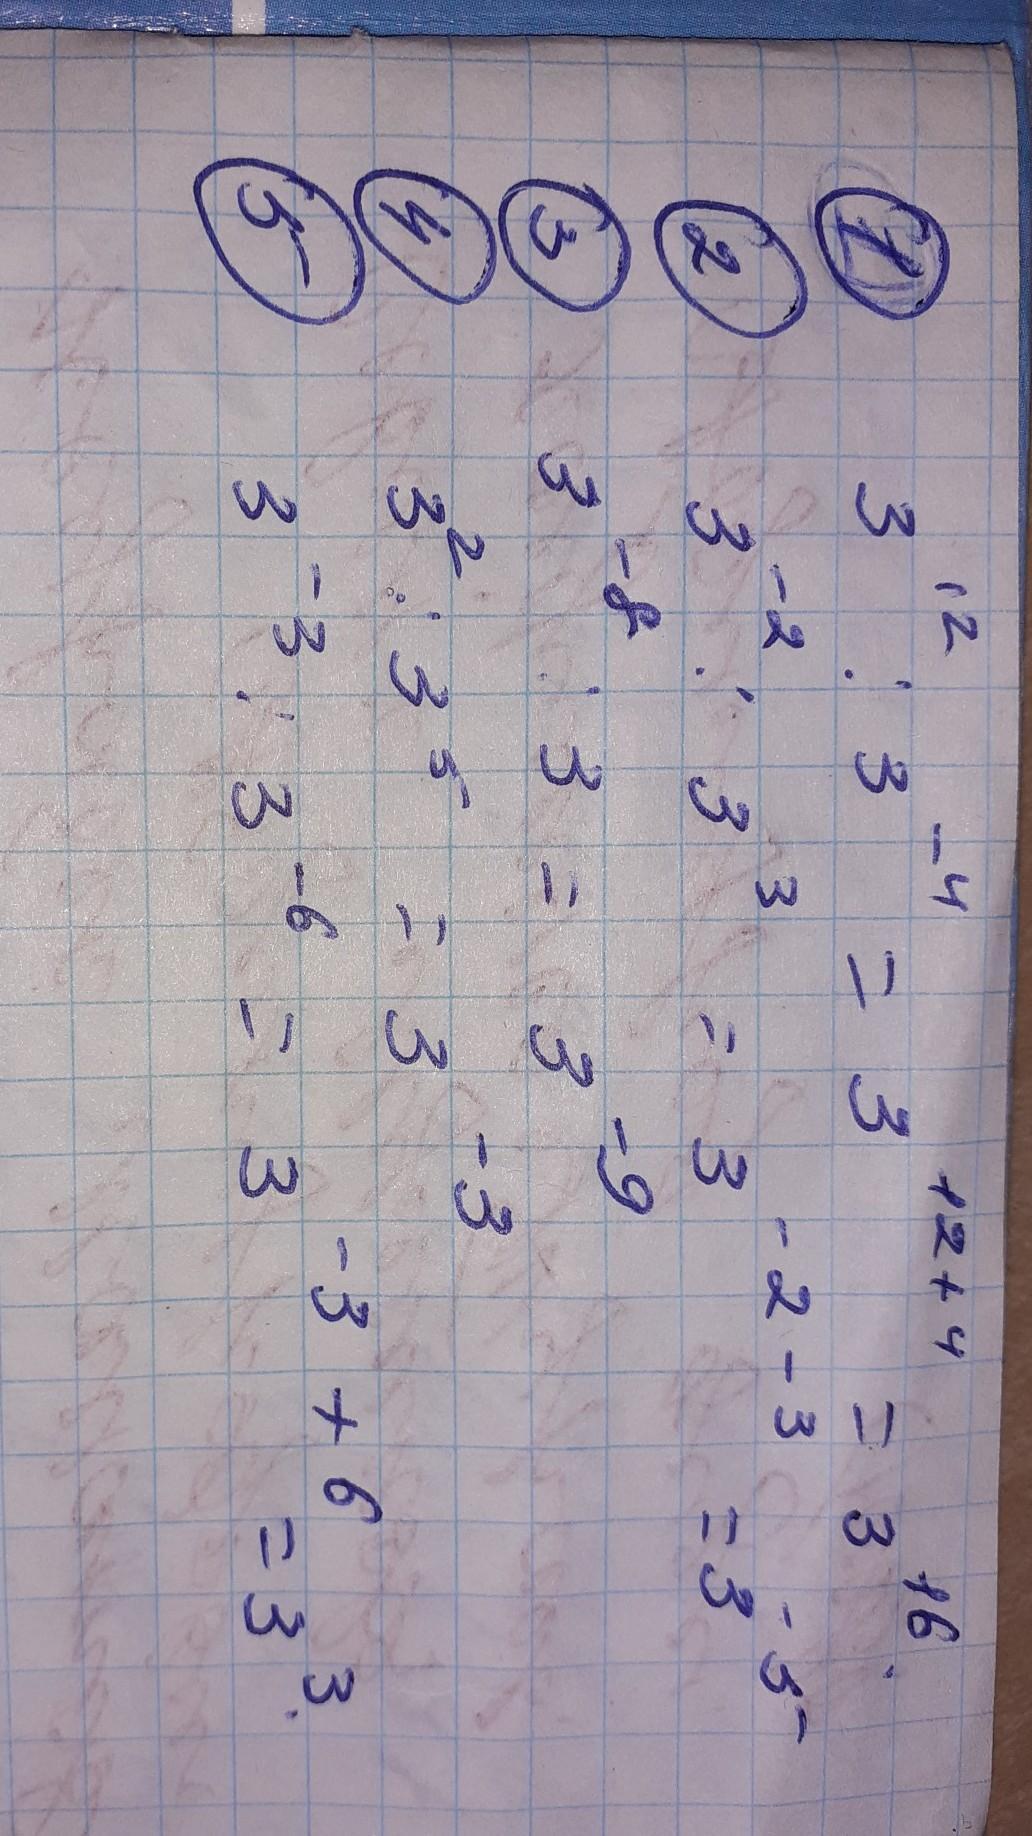 1 3¹² : 3⁻⁴ = 3¹²⁺⁴ = 3¹⁶.
2 3⁻² : 3³ = 3⁻²⁻³ = 3⁻⁵
3 3⁻⁸ : 3 = 3⁻⁹
4 3² : 3⁵ = 3⁻³
5 3⁻³ : 3⁻⁶ = 3⁻³⁺⁶ = 3³.